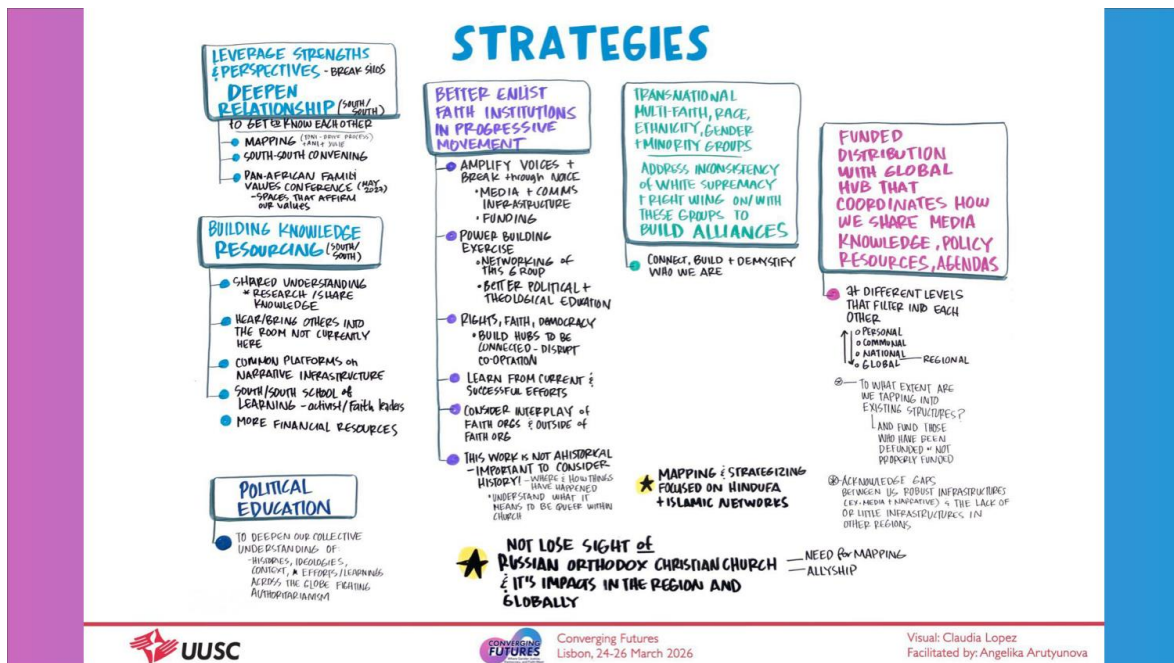 STRATEGIES
LEVERAGE STRENGTHS
& PERSPECTIVES - BREAK SILOS
DEEPEN
RELATIONSHIP (SOUTH/
SOUTH)
TO GET TO KNOW EACH OTHER
MAPPING
SOUTH-SOUTH CONVENING
PAN-AFRICAN FAMILY
VALUES CONFERENCE (MAY
- SPACES THAT AFFIRM
OUR VALUES
BUILDING KNOWLEDGE
RESOURCING (SOUTH/
SOUTH)
SHARED UNDERSTANDING
* RESEARCH/SHARE
KNOWLEDGE
HEAR/BRING OTHERS INTO
THE ROOM NOT CURRENTLY
HERE
COMMON PLATFORMS on
NARRATIVE INFRASTRUCTURE
SOUTH/SOUTH SCHOOL of
LEARNING - activist/Faith leaders
MORE FINANCIAL RESOURCES
POLITICAL
EDUCATION
TO DEEPEN OUR COLLECTIVE
UNDERSTANDING OF:
- HISTORIES, IDEOLOGIES,
CONTEXT, * EFFORTS/LEARNING
ACROSS THE GLOBE FIGHTING
AUTHORITARIANISM
BETTER ENLIST
FAITH INSTITUTIONS
IN PROGRESSIVE
MOVEMENT
AMPLIFY VOICES +
BREAK through NOICE
• MEDIA + COMMS
INFRASTRUCTURE
• FUNDING
POWER BUILDING
EXERCISE
• NETWORKING OF
THIS GROUP
• BETTER POLITICAL +
THEOLOGICAL EDUCATION
RIGHTS, FAITH, DEMOCRACY
• BUILD HUBS TO BE
CONNECTED - DISRUPT
CO-OPTATION
LEARN FROM CURRENT &
SUCCESSFUL EFFORTS
CONSIDER INTERPLAY of
FAITH ORGS & OUTSIDE OF
FAITH ORG
THIS WORK IS NOT AHISTORICAL
- IMPORTANT TO CONSIDER
HISTORY! - WHERE & HOW THINGS
HAVE HAPPENED
• UNDERSTAND WHAT IT
MEANS TO BE QUEER WITHIN
CHURCH
TRANSNATIONAL
MULTI-FAITH, RACE,
ETHNICITY, GENDER
+ MINORITY GROUPS
ADDRESS INCONSISTENCY
of WHITE SUPREMACY
+ RIGHT WING ON/WITH
THESE GROUPS TO
BUILD ALLIANCES
CONNECT, BUILD + DEMYSTIFY
WHO WE ARE
FUNDED
DISTRIBUTION
WITH GLOBAL
HUB THAT
COORDINATES HOW
WE SHARE MEDIA
KNOWLEDGE, POLICY
RESOURCES, AGENDAS
DIFFERENT LEVELS
THAT FILTER INTO EACH
OTHER
PERSONAL
COMMUNAL
NATIONAL
REGIONAL
GLOBAL
TO WHAT EXTENT ARE
WE TAPPING INTO
EXISTING STRUCTURES?
AND FUND THOSE
WHO HAVE BEEN
DEFUNDED or NOT
PROPERLY FUNDED
ACKNOWLEDGE GAPS
BETWEEN US ROBUST INFRASTRUCTURES
(EX-MEDIA + NARRATIVE) & THE LACK OF
OR LITTLE INFRASTRUCTURES IN
OTHER REGIONS
MAPPING & STRATEGIZING
FOCUSED ON HINDUFA
+ ISLAMIC NETWORKS
NOT LOSE SIGHT of
RUSSIAN ORTHODOX CHRISTIAN CHURCH
& IT'S IMPACTS IN THE REGION AND
GLOBALLY
NEED for MAPPING
ALLYSHIP
UUSC
CONVERGING
FUTURES
Converging Futures
Lisbon, 24-26 March 2026
Visual: Claudia Lopez
Facilitated by: Angelika Arutyunova